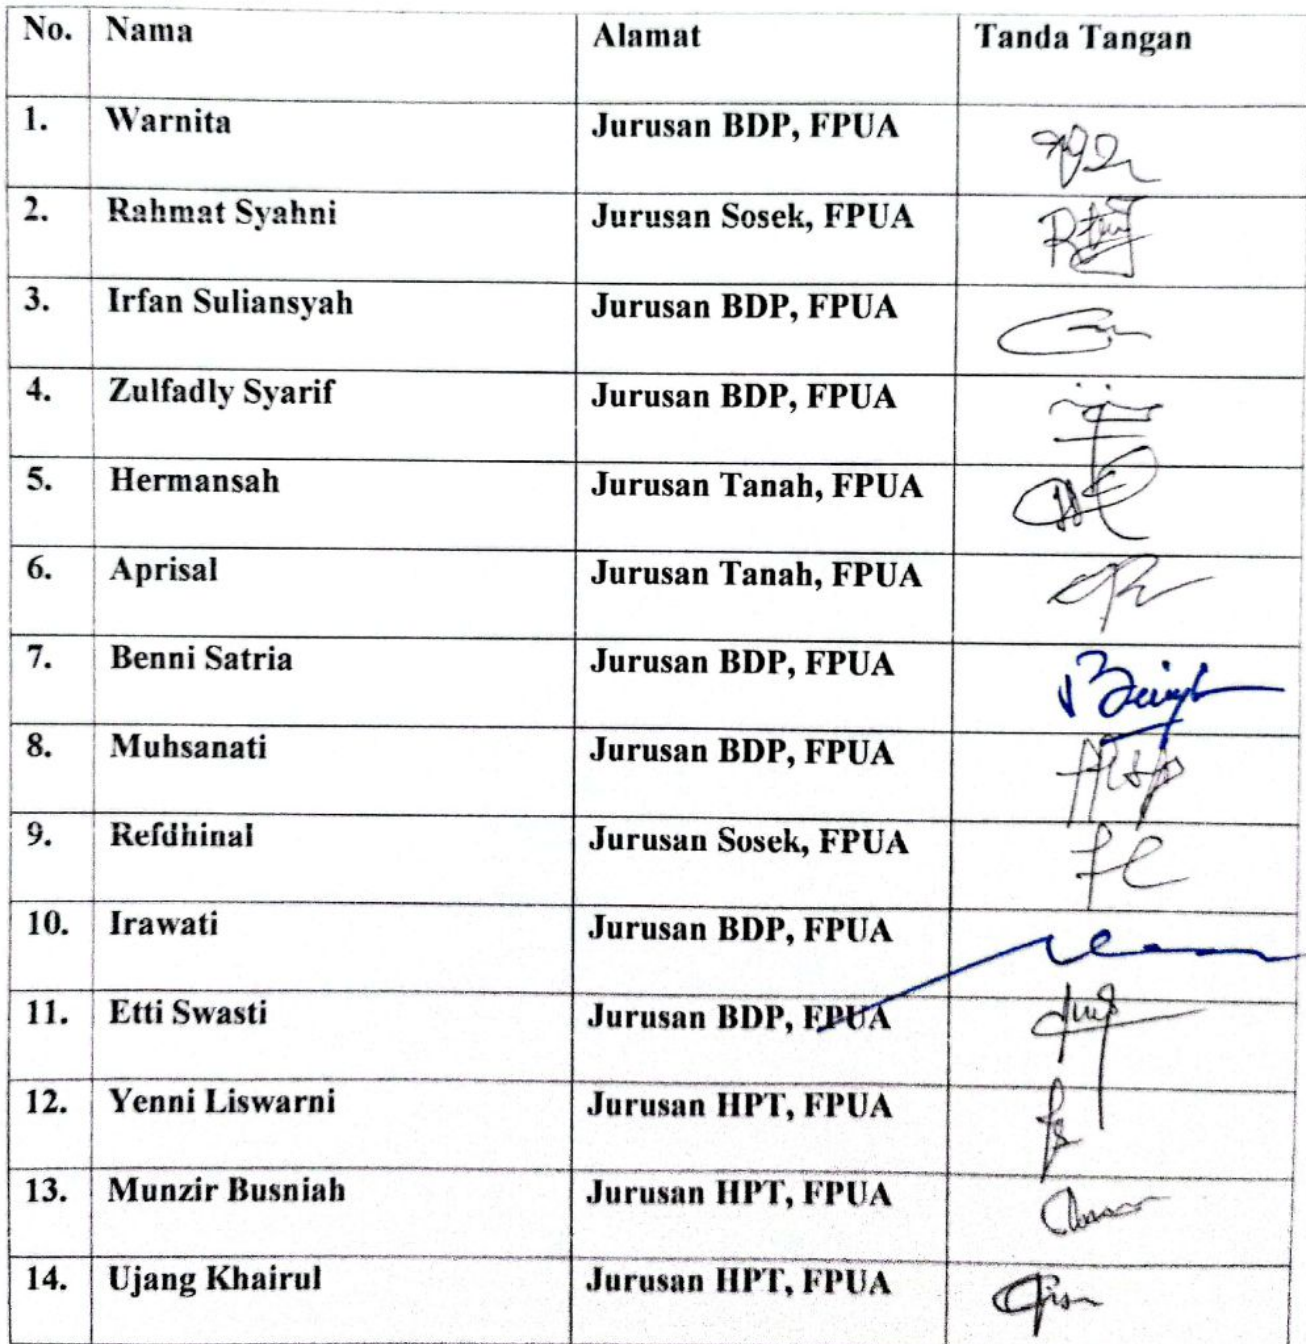 No. Nama Alamat Tanda Tangan
1. Warnita Jurusan BDP, FPUA
2. Rahmat Syahni Jurusan Sosek, FPUA
3. Irfan Suliansyah Jurusan BDP, FPUA
4. Zulfadly Syarif Jurusan BDP, FPUA
5. Hermansah Jurusan Tanah, FPUA
6. Aprisal Jurusan Tanah, FPUA
7. Benni Satria Jurusan BDP, FPUA
8. Muhsanati Jurusan BDP, FPUA
9. Refdhinal Jurusan Sosek, FPUA
10. Irawati Jurusan BDP, FPUA
11. Etti Swasti Jurusan BDP, FPUA
12. Yenni Liswarni Jurusan HPT, FPUA
13. Munzir Busniah Jurusan HPT, FPUA
14. Ujang Khairul Jurusan HPT, FPUA